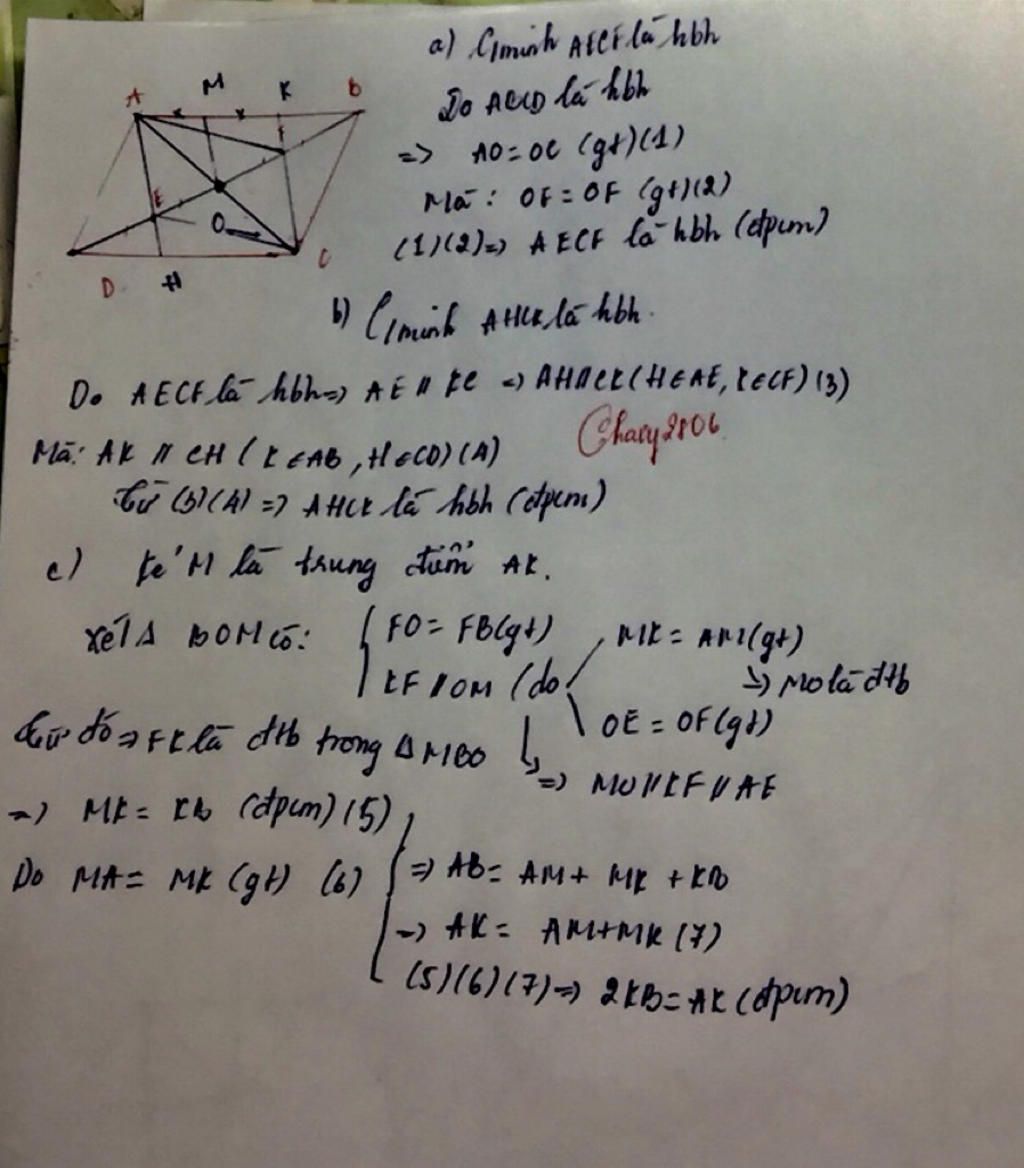 a) C/minh AECF là hbh
Do ABCD là hbh
=> AO = OC (gt) (1)
Mà: OE = OF (gt) (2)
(1)(2) => AECF là hbh (đpcm)
A M K B
F
E
O
D H C
b) C/minh AHCK là hbh.
Do AECF là hbh => AE // FC => AH // CK (H ∈ AE, K ∈ CF) (3)
Chaey2806
Mà: AK // CH (K ∈ AB, H ∈ CD) (4)
từ (3)(4) => AHCK là hbh (đpcm)
c) kẻ M là trung điểm AK.
xét Δ BOM có: { FO = FB (gt) MK = AM (gt)
KF // OM (do => MO là đtb
OE = OF (gt)
từ đó => FK là đtb trong Δ MBO
=> MO // KF // AE
=> MK = KB (đpcm) (5)
Do MA = MK (gt) (6) => AB = AM + MK + KB
=> AK = AM + MK (7)
(5)(6)(7) => 2KB = AK (đpcm)